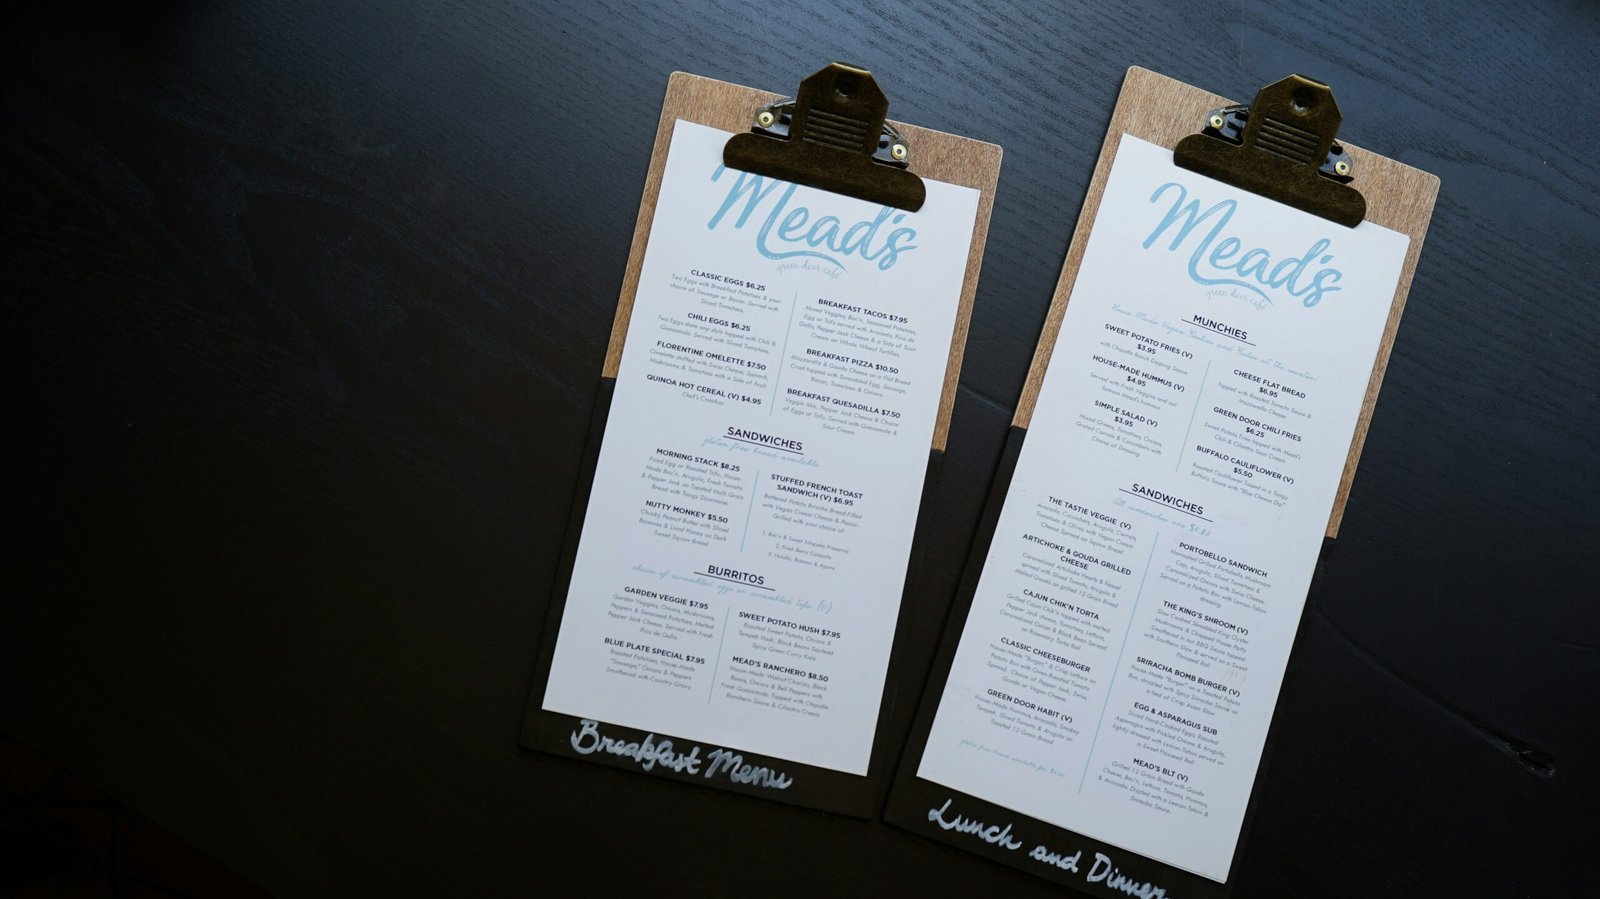 Mead's
green door café
CLASSIC EGGS $6.25
Two Eggs with Breakfast Potatoes & your
choice of Sausage or Bacon. Served with
Sliced Tomatoes.
CHILI EGGS $6.25
Two Eggs done any style topped with Chili &
Guacamole. Served with Sliced Tomatoes.
FLORENTINE OMELETTE $7.50
Omelette stuffed with Swiss Cheese, Spinach,
Mushrooms & Tomatoes with a Side of Fruit
QUINOA HOT CEREAL (V) $4.95
Chef's Creation
BREAKFAST TACOS $7.95
Mixed Veggies, Bac'n, Seasoned Potatoes,
Egg or Tofu served with Avocado, Pico de
Gallo, Pepper Jack Cheese & a Side of Sour
Cream on Whole Wheat Tortillas.
BREAKFAST PIZZA $10.50
Mozzarella & Gouda Cheese on a Flat Bread
Crust topped with Scrambled Egg, Sausage,
Bacon, Tomatoes & Onions
BREAKFAST QUESADILLA $7.50
Veggie Mix, Pepper Jack Cheese & Choice
of Eggs or Tofu. Served with Guacamole &
Sour Cream
SANDWICHES
gluten free bread available
MORNING STACK $8.25
Fried Egg or Roasted Tofu, House-
Made Bac'n, Arugula, Fresh Tomato
& Pepper Jack on Toasted Multi Grain
Bread with Tangy Dijonnaise.
NUTTY MONKEY $5.50
Chunky Peanut Butter with Sliced
Bananas & Local Honey on Dark
Sweet Squaw Bread
STUFFED FRENCH TOAST
SANDWICH (V) $6.95
Battered Potato Brioche Bread Filled
with Vegan Cream Cheese & Panini-
Grilled with your choice of:
1. Bac'n & Sweet Jalapeño Preserves
2. Fresh Berry Compote
3. Nutella, Banana & Agave
BURRITOS
choice of scrambled eggs or scrambled tofu (v)
GARDEN VEGGIE $7.95
Garden Veggies, Onions, Mushrooms,
Peppers & Seasoned Potatoes, Melted
Pepper Jack Cheese. Served with Fresh
Pico de Gallo
BLUE PLATE SPECIAL $7.95
Roasted Potatoes, House-Made
"Sausage," Onions & Peppers
Smothered with Country Gravy
SWEET POTATO HUSH $7.95
Roasted Sweet Potato, Onions &
Tempeh Hash, Black Beans Sauteed
Spicy Green Curry Kale
MEAD'S RANCHERO $8.50
House-Made Walnut Chorizo, Black
Beans, Onions & Bell Peppers with
Fresh Guacamole. Topped with Chipotle
Ranchero Sauce & Cilantro Cream
Breakfast Menu
Mead's
green door café
MUNCHIES
House Made Vegan Cookies and Cakes at the counter!
SWEET POTATO FRIES (V)
$3.95
with Chipotle Ranch Dipping Sauce
HOUSE-MADE HUMMUS (V)
$4.95
Served with Fresh Veggies and our
famous Mead's hummus
SIMPLE SALAD (V)
$3.95
Mixed Greens, Tomatoes, Onions,
Grated Carrots & Cucumbers with
Choice of Dressing
CHEESE FLAT BREAD
$6.95
Topped with Roasted Tomato Sauce &
Mozzarella Cheese
GREEN DOOR CHILI FRIES
$6.25
Sweet Potato Fries topped with Mead's
Chili & Cilantro Sour Cream
BUFFALO CAULIFLOWER (V)
$5.50
Roasted Cauliflower Tossed in a Tangy
Buffalo Sauce with "Blue Cheese Dip"
SANDWICHES
All sandwiches are
THE TASTIE VEGGIE (V)
Avocado, Cucumbers, Arugula, Carrots,
Tomatoes & Olives with Vegan Cream
Cheese Spread on Squaw Bread
ARTICHOKE & GOUDA GRILLED
CHEESE
Caramelized Artichoke Hearts & Fennel
spread with Sliced Tomato, Arugula &
Melted Gouda on grilled 12 Grain Bread
CAJUN CHIK'N TORTA
Grilled Cajun Chik'n topped with melted
Pepper Jack cheese, Tomatoes, Lettuce,
Caramelized Onion & Black Bean Spread
on Rosemary Torta Roll
CLASSIC CHEESEBURGER
House-Made "Burger" & Crisp Lettuce on
Potato Bun with Oven-Roasted Tomato
Spread. Choice of Pepper Jack, Swiss,
Gouda or Vegan Cheese.
GREEN DOOR HABIT (V)
House-Made Hummus, Avocado, Smokey
Tempeh, Sliced Tomato & Arugula on
Toasted 12 Grain Bread
gluten free bread available for
PORTOBELLO SANDWICH
Marinated Grilled Portobello Mushroom
Cap, Arugula, Sliced Tomatoes,
Caramelized Onions with Swiss Cheese,
Served on a Potato Bun with Lemon-Tahini
dressing.
THE KING'S SHROOM (V)
Slow Cooked Shredded King Oyster
Mushrooms & Chopped House Patty
Smothered in our BBQ Sauce topped
with Southern Slaw & served on a Sweet
Flaxseed Roll
SRIRACHA BOMB BURGER (V)
House-Made "Burger" on a Toasted Potato
Bun, drizzled with Spicy Sriracha Sauce on
a bed of Crisp Asian Slaw
EGG & ASPARAGUS SUB
Sliced Hard-Cooked Eggs, Roasted
Asparagus with Pickled Onions & Arugula,
lightly dressed with Lemon-Tahini served on
a Sweet Flaxseed Roll
MEAD'S BLT (V)
Grilled 12 Grain Bread with Gouda
Cheese, Bac'n, Lettuce, Tomato, Hummus,
& Avocado, Dizzled with a Lemon-Tahini &
Sriracha Sauce.
Lunch and Dinner